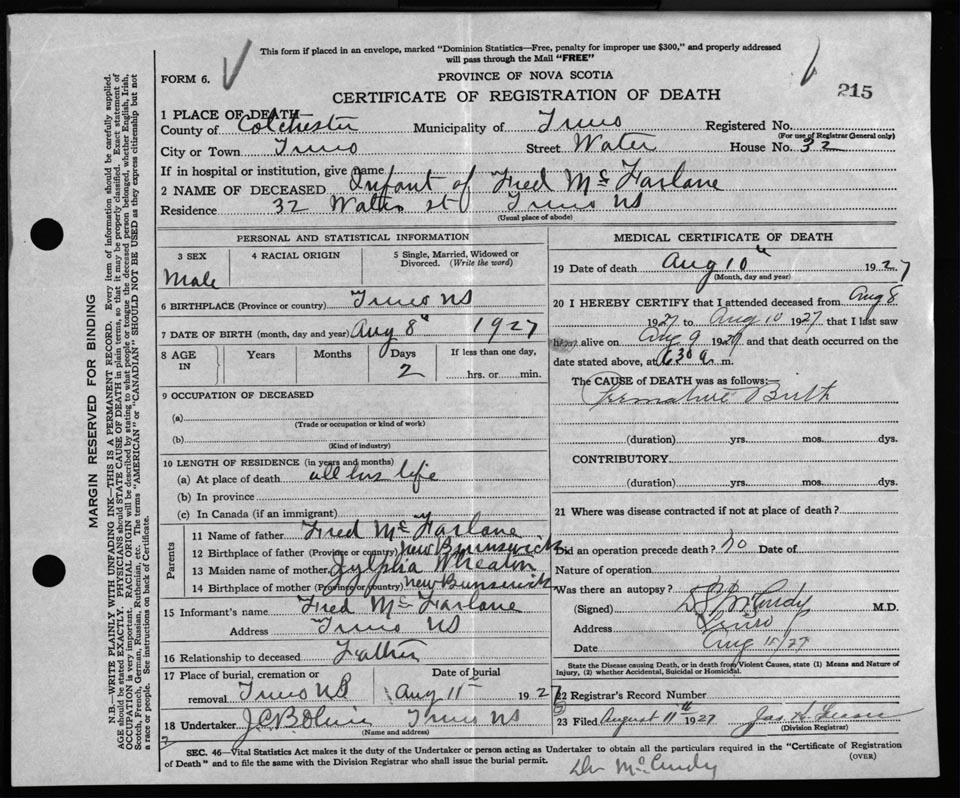 This form if placed in an envelope, marked "Dominion Statistics—Free, penalty for improper use $300," and properly addressed
will pass through the Mail "FREE"
FORM 6.
PROVINCE OF NOVA SCOTIA
CERTIFICATE OF REGISTRATION OF DEATH
215
1 PLACE OF DEATH
County of Colchester Municipality of Truro Registered No.
(For use of Registrar General only)
City or Town Truro Street Water House No. 32
If in hospital or institution, give name
2 NAME OF DECEASED Infant of Fred McFarlane
Residence 32 Water st Truro NS
(Usual place of abode)
PERSONAL AND STATISTICAL INFORMATION
3 SEX 4 RACIAL ORIGIN 5 Single, Married, Widowed or
Divorced. (Write the word)
Male
6 BIRTHPLACE (Province or country) Truro NS
7 DATE OF BIRTH (month, day and year) Aug 8th 1927
8 AGE IN Years Months Days If less than one day,
2 hrs. or min.
9 OCCUPATION OF DECEASED
(a)
(Trade or occupation or kind of work)
(b)
(Kind of industry)
10 LENGTH OF RESIDENCE (in years and months)
(a) At place of death all his life
(b) In province
(c) In Canada (if an immigrant)
Parents
11 Name of father Fred McFarlane
12 Birthplace of father (Province or country) New Brunswick
13 Maiden name of mother Zylpha Wheaton
14 Birthplace of mother (Province or country) New Bunswick
15 Informant's name Fred McFarlane
Address Truro NS
16 Relationship to deceased Father
17 Place of burial, cremation or Date of burial
removal Truro NS Aug 11th 1927
18 Undertaker Truro NS
(Name and address)
MEDICAL CERTIFICATE OF DEATH
19 Date of death Aug 10th 1927
(Month, day and year)
20 I HEREBY CERTIFY that I attended deceased from Aug 8
1927 to Aug 10 1927 that I last saw
h alive on Aug 9 1927 and that death occurred on the
date stated above, at 630 a m.
The CAUSE of DEATH was as follows:
Premature Birth
(duration) yrs. mos. dys.
CONTRIBUTORY
(duration) yrs. mos. dys.
21 Where was disease contracted if not at place of death?
Did an operation precede death? No Date of
Nature of operation
Was there an autopsy?
(Signed) McCurdy M.D.
Address Truro
Date Aug 10/27
State the Disease causing Death, or in death from Violent Causes, state (1) Means and Nature of
Injury, (2) whether Accidental, Suicidal or Homicidal.
22 Registrar's Record Number
23 Filed August 11th 1927 Jas
(Division Registrar)
SEC. 46—Vital Statistics Act makes it the duty of the Undertaker or person acting as Undertaker to obtain all the particulars required in the "Certificate of Registration
of Death" and to file the same with the Division Registrar who shall issue the burial permit.
(OVER)
Dr McCurdy
MARGIN RESERVED FOR BINDING
N.B.—WRITE PLAINLY WITH UNFADING INK—THIS IS A PERMANENT RECORD. Every item of information should be carefully supplied.
AGE should be stated EXACTLY. PHYSICIANS should STATE CAUSE OF DEATH in plain terms, so that it may be properly classified. Exact statement of
OCCUPATION is very important. RACIAL ORIGIN will be described by stating to what people or tongue the deceased person belonged, whether English, Irish,
Scotch, French, German, Russian, Ruthenian, etc. The terms "AMERICAN" or "CANADIAN" SHOULD NOT BE USED as they express citizenship but not
a race or people. See instructions on back of Certificate.